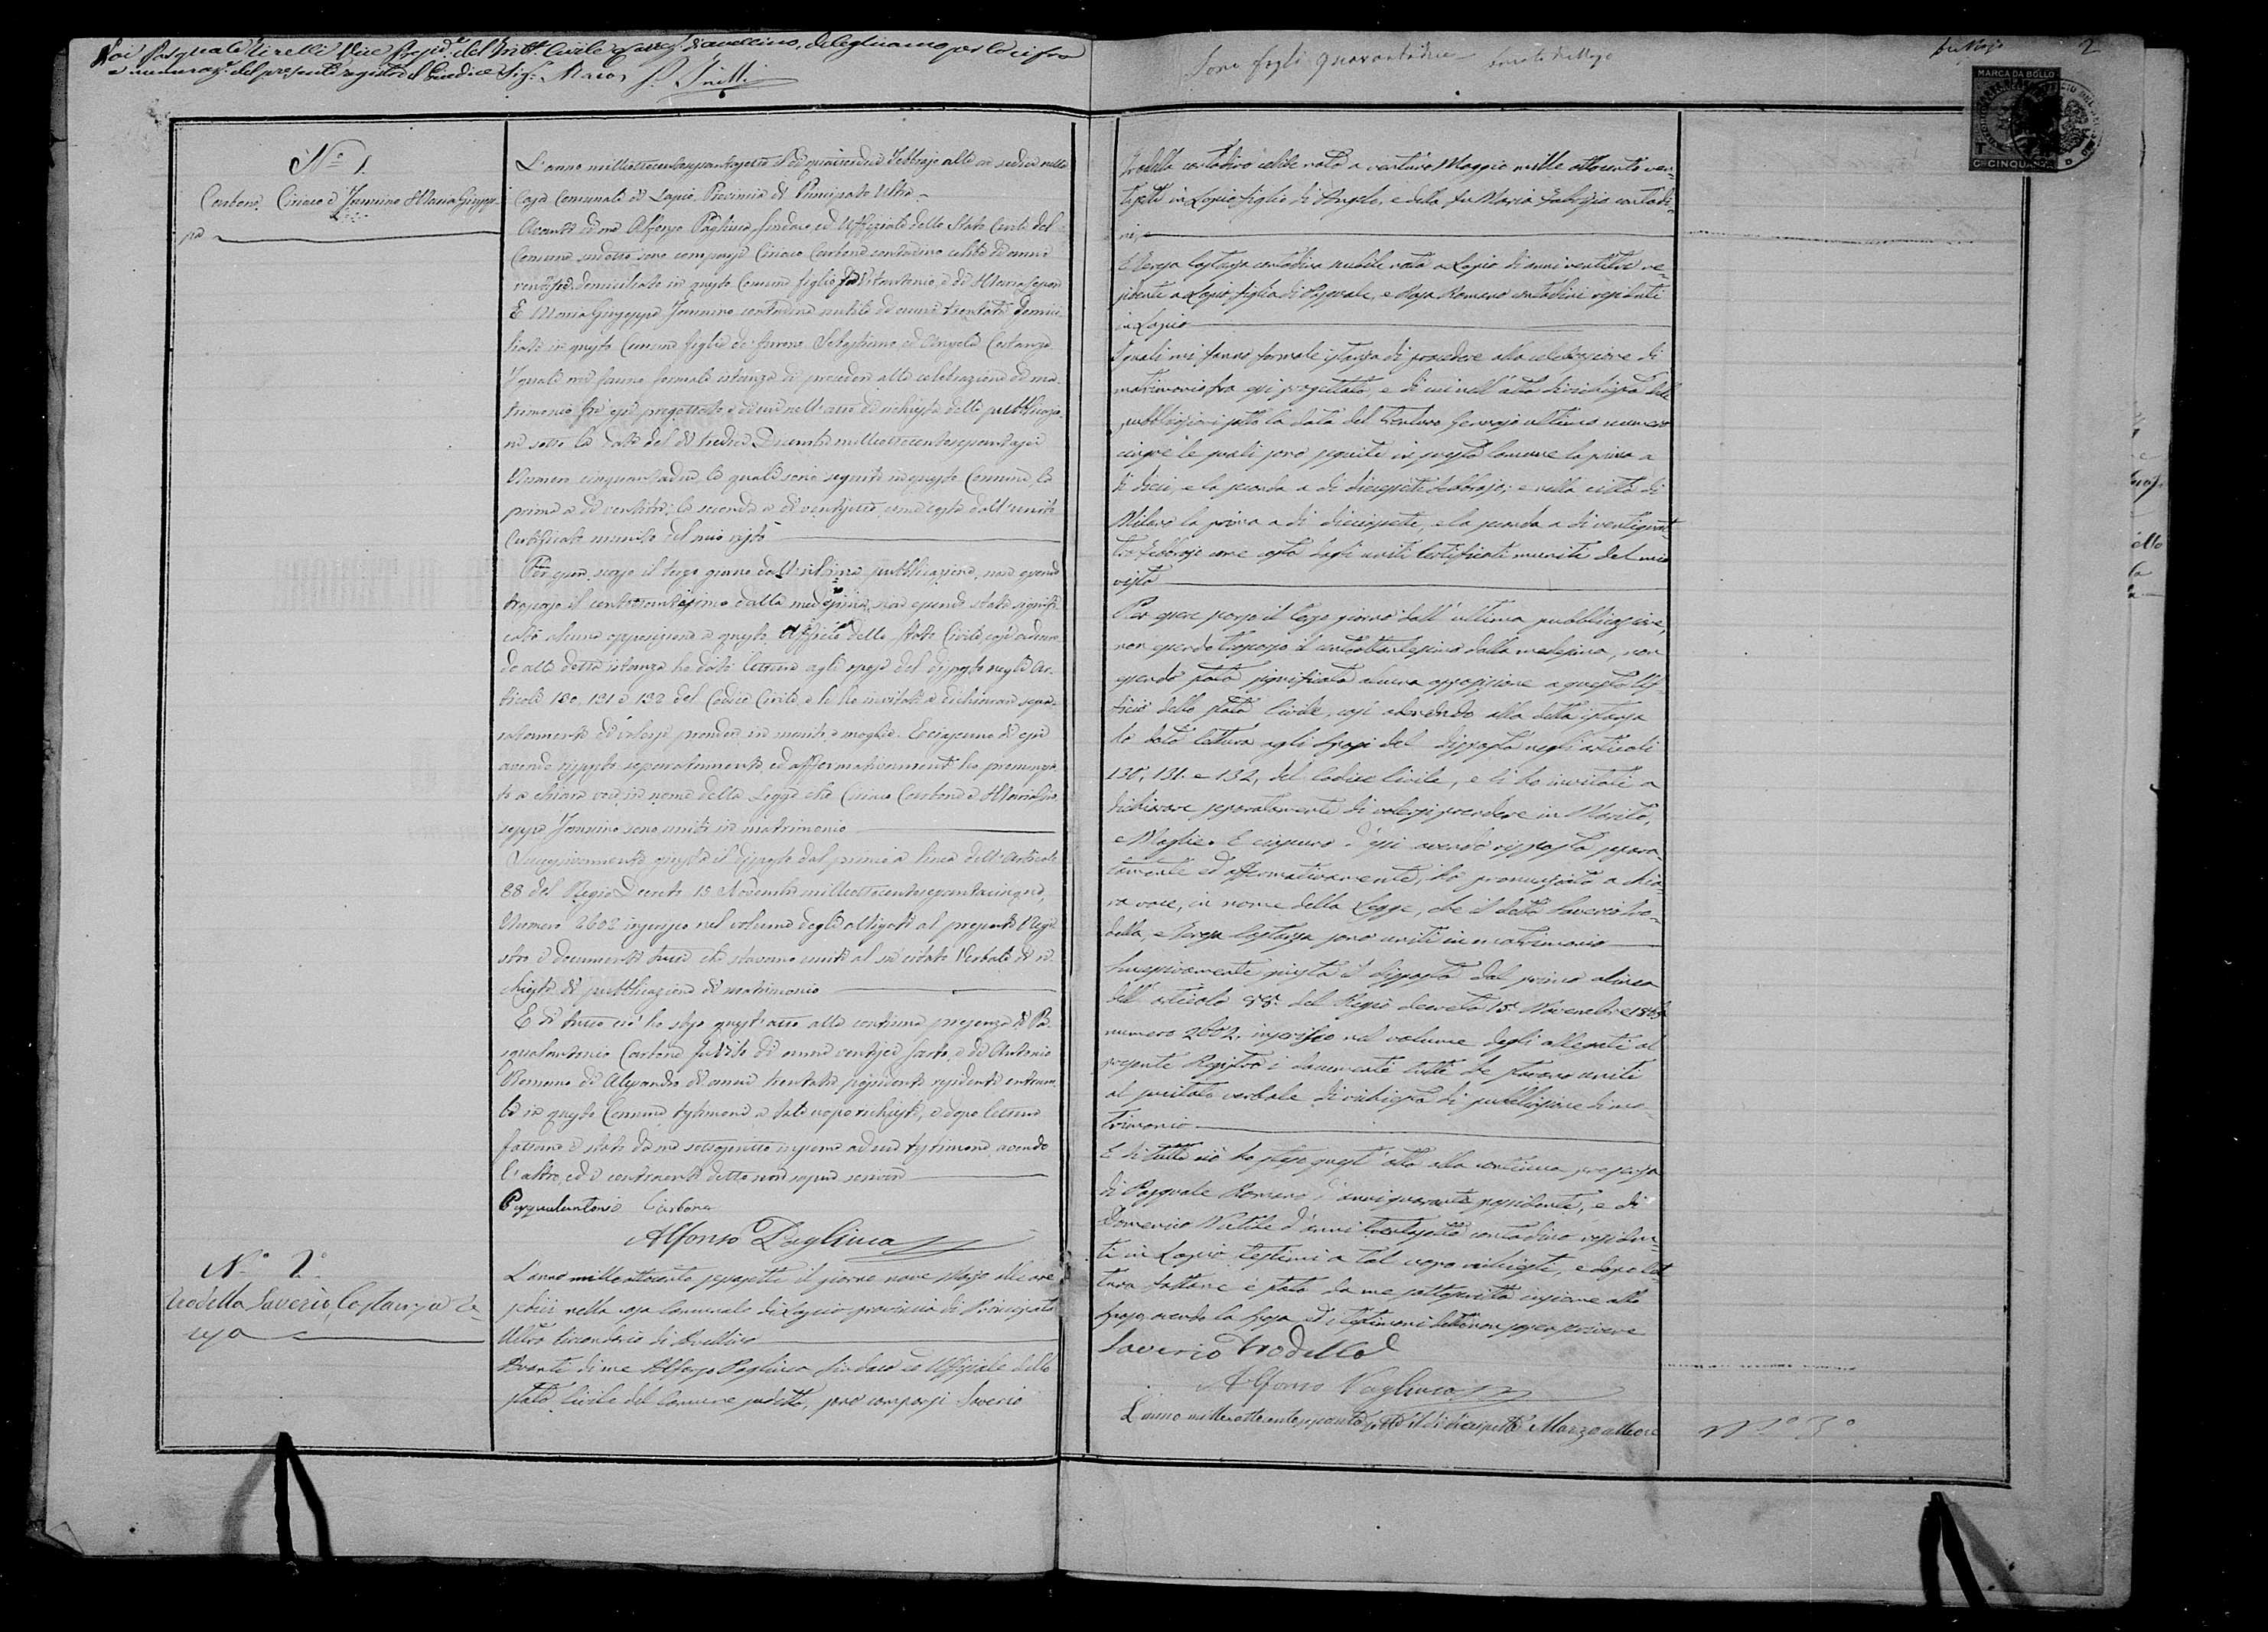 Noi Pasquale Tirelli Vice Presid.te del Trib.le Civile e Correz.le di Avellino, deleghiamo per la cifra
e numeraz.e del presente registro il Giudice Sig.r Macor P. Tirelli
Sono fogli quarantadue
2
MARCA DA BOLLO
C.mi CINQUANTA
N.o 1.
Carbone Ciriaco e Jannino Maria Giusep-
pa
L'anno milleottocentosessantasette il dì quindici Febbrajo alle ore sedici nella
Casa Comunale di Lapio, Provincia di Principato Ultra
Avanti di me Alfonso Pagliuca Sindaco ed Uffiziale dello Stato Civile del
Comune sudetto sono comparsi Ciriaco Carbone contadino celibe di anni
ventisei domiciliato in questo Comune figlio di Antonio, e di Maria
E Maria Giuseppa Jannino contadina nubile di anni trentatre domici-
liata in questo Comune figlia di Sebastiano, ed Angela Costanza
I quali mi fanno formale istanza di procedere alla celebrazione di ma-
trimonio fra essi progettato e di cui nell'atto di richiesta delle pubblicazio-
ni sotto la data del dì tredici Dicembre milleottocentosessantasei
Numero cinquantadue, le quali sono seguite in questo Comune, la
prima a dì ventitre, la seconda a dì ventisette come costa dall'unito
Certificato munito del mio visto
Per esser scorso il terzo giorno dall'ultima pubblicazione, non essendo
trascorso il centottantesimo dalla medesima, non essendo stata signifi-
cata alcuna opposizione a questo Officio dello Stato Civile, così aderen-
do alla detta istanza ho dato lettura agli sposi del disposto negli Ar-
ticoli 130, 131 e 132 del Codice Civile, e li ho invitati a dichiarare sepa-
ratamente di volersi prendere in marito, e moglie. E ciascuno di essi
avendo risposto separatamente, ed affermativamente ho pronunzia-
to a chiara voce in nome della Legge che Ciriaco Carbone e Maria Giu-
seppa Jannino sono uniti in matrimonio
Successivamente giusta il disposto dal primo a linea dell'Articolo
88 del Regio Decreto 15 Novembre milleottocentosessantacinque,
Numero 2602 inserisco nel volume degli allegati al presente Regi-
stro i documenti tutti che stavano uniti al su citato Verbale di ri-
chiesta di pubblicazione di matrimonio
E di tutto ciò ho steso quest'atto alla continua presenza di Pa-
squalantonio Carbone fu Vito di anni ventisei sarto, e di Antonio
Romano di Alessandro di anni trentatre possidente residenti entram-
bi in questo Comune testimoni a tale uopo richiesti, e dopo lettura
fattane è stato da me sottoscritto insieme ad un testimone avendo
l'altro, ed i contraenti detto non sapere scrivere
Pasqualantonio Carbone
Alfonso Pagliuca
N.o 2.o
Trodella Saverio, Costanza Te-
resa
L'anno milleottocento sessantasette il giorno nove Marzo alle ore
sedici nella casa Comunale di Lapio provincia di Principato
Ultra Circondario di Avellino
Avanti di me Alfonso Pagliuca Sindaco ed Uffiziale dello
stato Civile del Comune sudetto, sono comparsi Saverio
Trodella contadino celibe nato a ventuno Maggio mille ottocento ven-
tisette in Lapio figlio di Angelo, e della fu Maria Fabrizio contadi-
ni,
E Teresa Costanza contadina nubile nata a Lapio di anni ventitre re-
sidente a Lapio figlia di Pasquale, e Rosa Romano contadini residenti
in Lapio
I quali mi fanno formale istanza di procedere alla celebrazione di
matrimonio fra essi progettato, e di cui nell'atto di richiesta delle
pubblicazioni sotto la data del trentuno Gennajo ultimo numero
cinque le quali sono seguite in questo Comune la prima a
dì dieci, e la seconda a dì diciassette Febbrajo; e nella città di
Milano la prima a dì diciassette, e la seconda a dì ventiquat-
tro Febbrajo come costa dagli uniti Certificati muniti del mio
visto
Per essere scorso il terzo giorno dall'ultima pubblicazione,
non essendo trascorso il centottantesimo dalla medesima, non
essendo stata significata alcuna opposizione a questo Uf-
ficio dello stato Civile, così aderendo alla detta istanza
ho dato lettura agli sposi del disposto negli articoli
130, 131. e 132, del Codice Civile, e li ho invitati a
dichiarare separatamente di volersi prendere in Marito,
e Moglie. E ciascuno d'essi avendo risposto separa-
tamente ed affermativamente, ho pronunziato a chia-
ra voce, in nome della Legge, che il detto Saverio Tro-
della, e Teresa Costanza sono uniti in matrimonio
Successivamente giusta il disposto dal primo alinea
dell'articolo 88. del Regio decreto 15 Novembre 1865
numero 2602, inserisco nel volume degli allegati al
presente Registro i documenti tutti che stavano uniti
al precitato verbale di richiesta di pubblicazione di ma-
trimonio
E di tutto ciò ho steso quest'atto alla continua presenza
di Pasquale Romano d'anni quaranta possidente, e di
Domenico Natale d'anni trentasette contadino residen-
ti in Lapio testimoni a tal uopo richiesti, e dopo let-
tura fattane è stato da me sottoscritto insieme allo
sposo, avendo la sposa ed i testimoni detto non sapere scrivere
Saverio Trodella
Alfonso Pagliuca
L'anno milleottocentosessantasette il dì diciassette Marzo alle ore
N.o 3.o